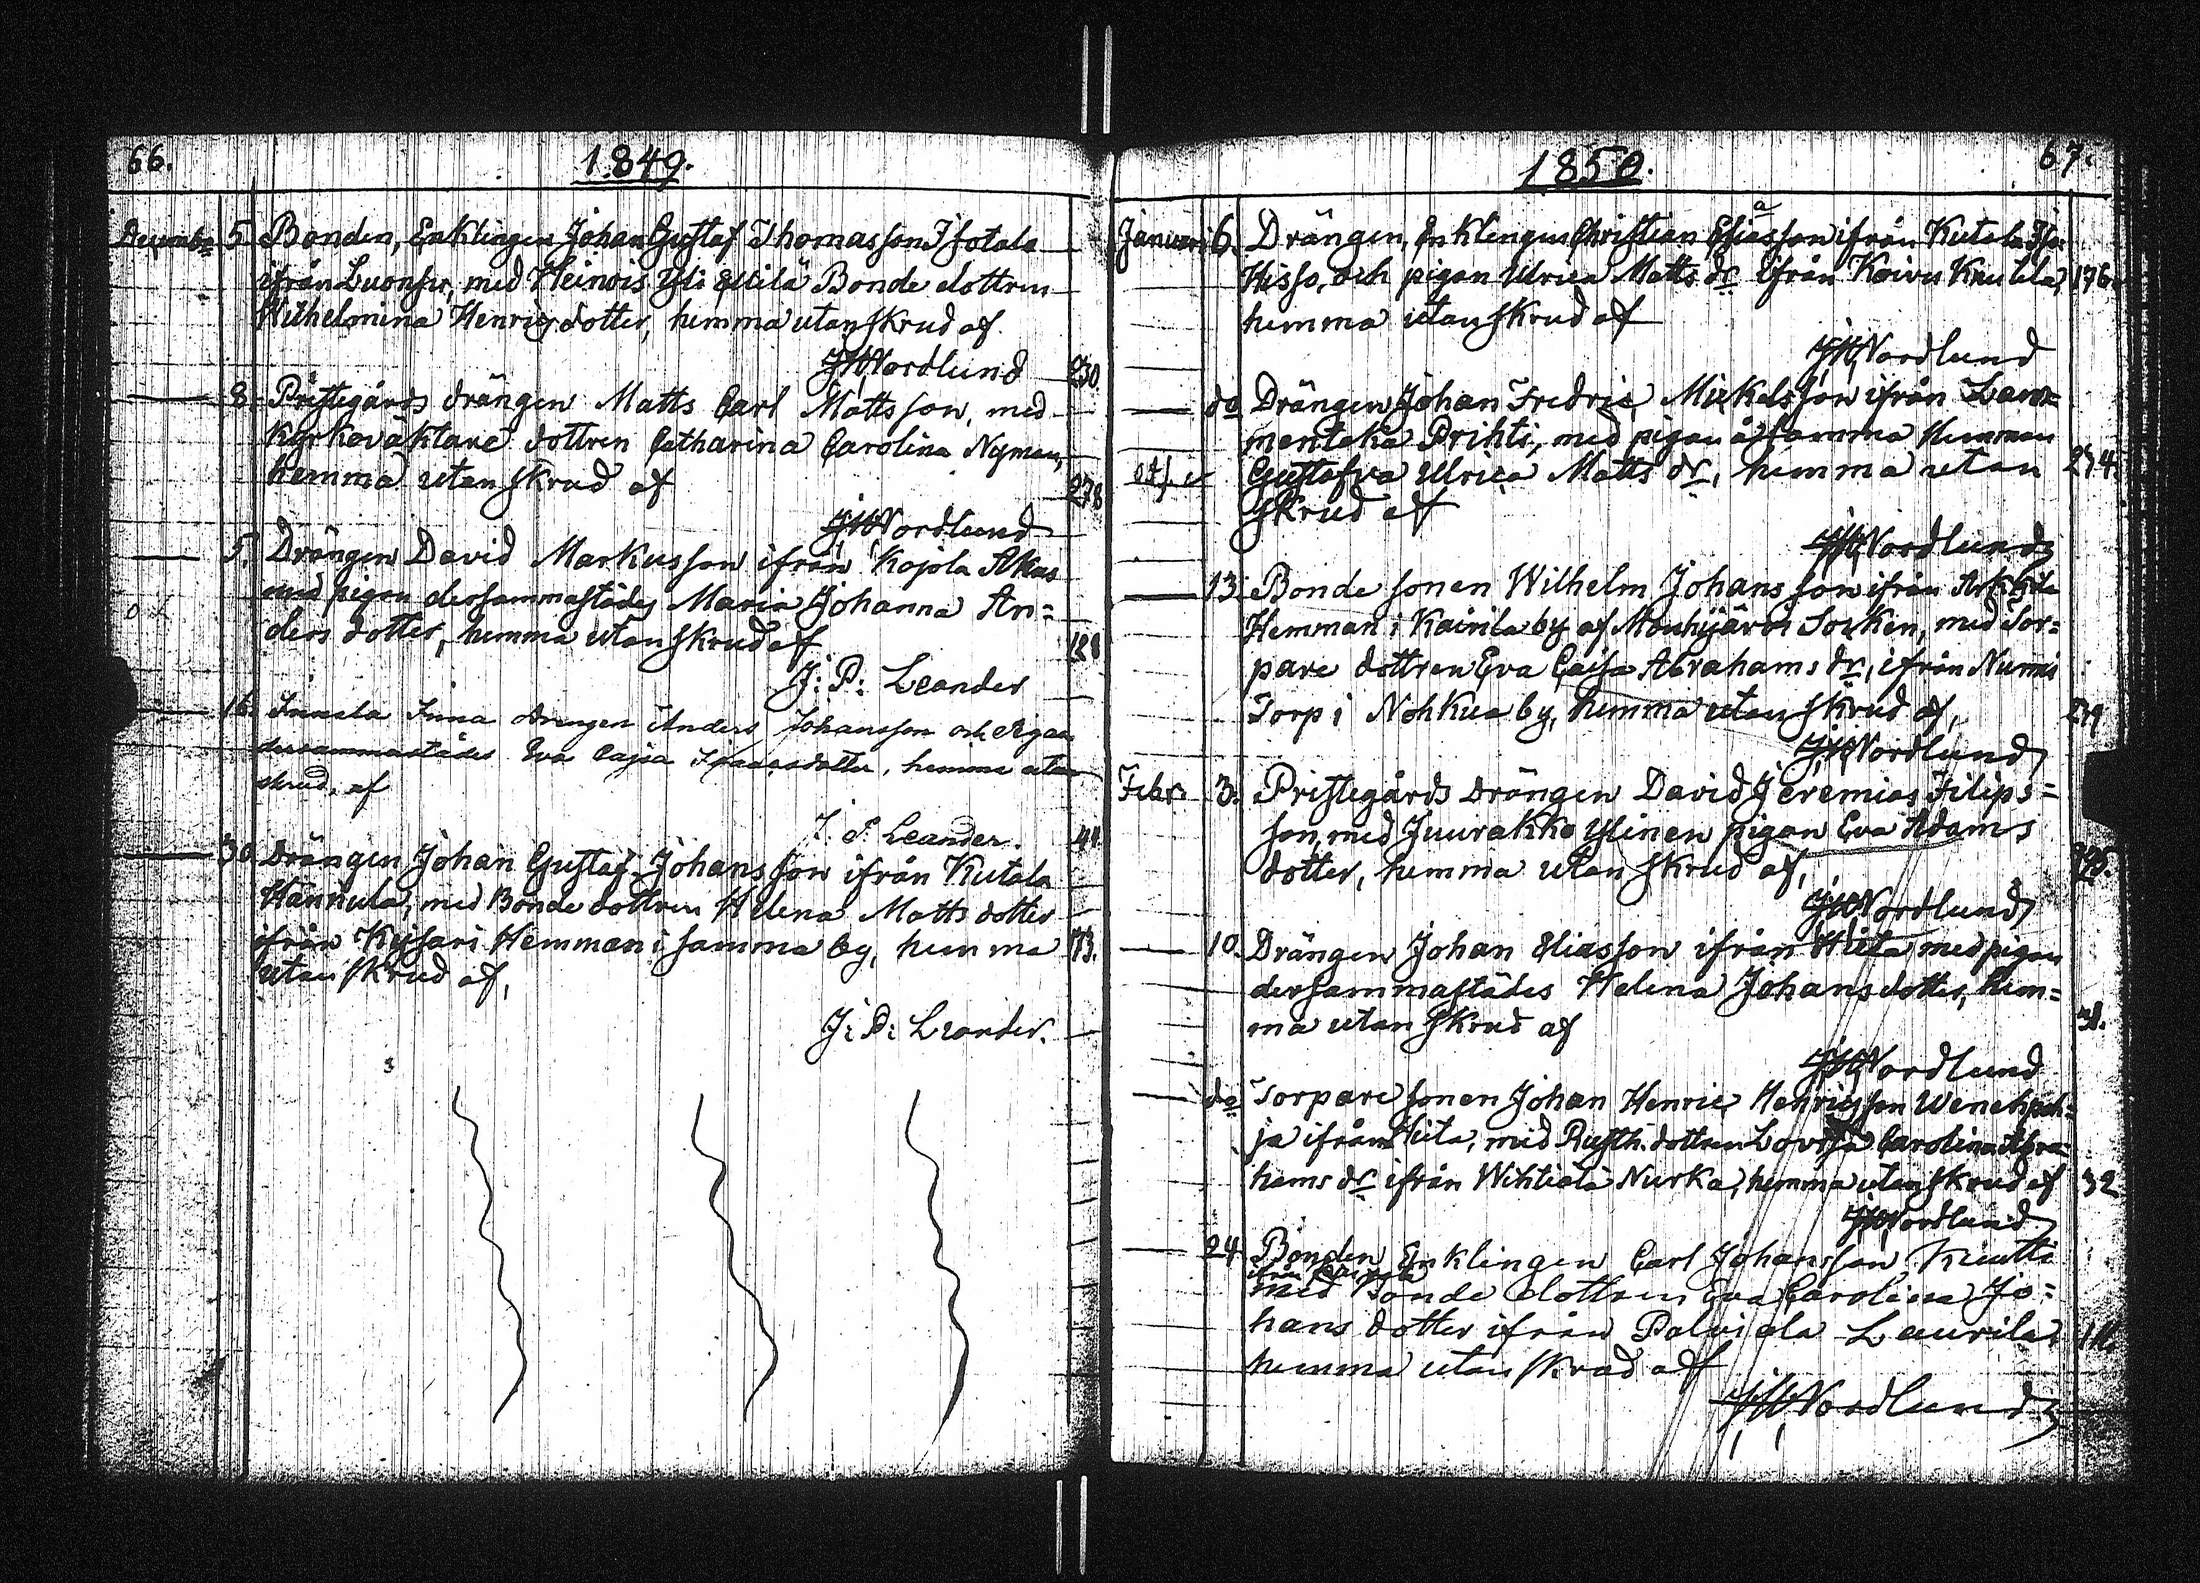 66.
1849.
December 5. Bonden, Enklingen Johan Gustaf Thomasson Isotalo
ifrån Luonsu, med Heinois Yli Ellilä Bonde dottren
Wilhelmina Henrics dotter, hemma utan skrud af
JWNordlund 230.
8. Prestegårds drängen Matts Carl Mattsson, med
Kyrkoväktare dottren Catharina Carolina Nyman,
hemma utan skrud af 278
JWNordlund
5. Drängen David Markusson ifrån Kojola Akas
med pigan dersammastädes Maria Johanna An=
ders dotter, hemma utan skrud af
J: P: Leander
16. drengen Anders Johansson och Pigan
dersammastädes Eva Cajsa Isaacsdotter, hemma utan
skrud, af
J. P. Leander. 44
30. Drängen Johan Gustaf Johansson ifrån Kutala
Hannula, med Bonde dottren Helena Matts dotter
ifrån Keisari Hemman i samma by, hemma 173.
utan skrud af,
J: P: Leander.
1850. 67.
Januari 6. Drängen, Enklingen Christian Eliasson ifrån Kutala Iso
Hisso, och pigan Ulrica Matts dr ifrån Koivu Knutila, 176.
hemma utan skrud af
JWNordlund
do Drängen Johan Fredric Mickelsson ifrån Lam=
menteka Prihti, med pigan å samma Hemman
Gustafva Ulrica Matts dr, hemma utan 274.
skrud af
JWNordlund
13. Bonde sonen Wilhelm Johansson ifrån
Hemman i Kairila by af Mouhijärvi Socken, med Tor=
pare dottren Eva Cajsa Abrahams dr, ifrån Numi
Torp i Nohkua by, hemma utan skrud af,
JWNordlund
Febr. 3. Prestegårds Drängen David Jeremias Filips=
son, med Juurakko Ylinen pigan Eva Adams
dotter, hemma utan skrud af,
JWNordlund
10. Drängen Johan Eliasson ifrån Hiita med pigan
dersammastädes Helena Johans dotter, hem=
ma utan skrud af 31.
JWNordlund
do Torpare sonen Johan Henric Henricsson
ja ifrån Hiita, med Rusth. dottren Lovisa Carolina Abra=
hams dr ifrån Wihtiälä Nurka, hemma utan skrud af 32
JWNordlund
24. Bonden Enklingen Carl Johansson Knutti
ifrån
med Bonde dottren Eva Carolina Jo=
hans dotter ifrån Palviala Laurila,
hemma utan skrud af
JWNordlund